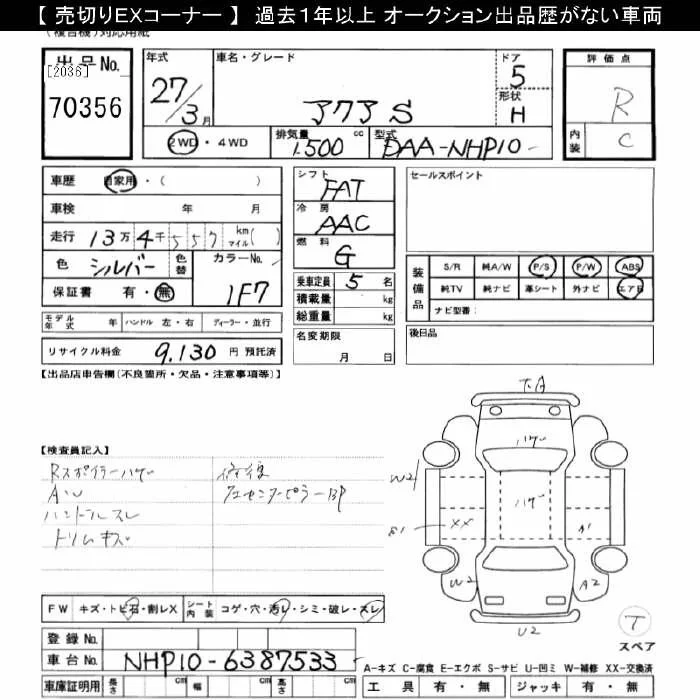 【 売切りEXコーナー 】 過去1年以上 オークション出品歴がない車両
(複合機) 対応用紙
出品No. [2036] 70356
年式 27/3月
車名・グレード アクア S
ドア 5
形状 H
評価点 R
内装 C
2WD・4WD
排気量 1,500 cc
型式 DAA-NHP10-
車歴 自家用・( )
車検 年 月
走行 13万4千557 km マイル( )
色 シルバー 色替
カラーNo. 1F7
保証書 有・無
モデル年式 年 ハンドル 左・右 ディーラー・並行
リサイクル料金 9,130 円 預託済
シフト FAT
冷房 AAC
燃料 G
乗車定員 5 名
積載量 kg
総重量 kg
名変期限 月 日
セールスポイント
装備品 S/R 純A/W P/S P/W ABS
純TV 純ナビ 革シート 外ナビ エアB
ナビ型番:
後日品
【出品店申告欄(不良箇所・欠品・注意事項等)】
【検査員記入】
Rスポイラーハゲ
AW
ハンドルスレ
トリムキズ
修復
左センターピラーBP
下A
ハゲ
W2
ハゲ
S1
XX
A1
W2
A2
U2
T
スペア
FW キズ・トビ石・割レX
シート内装 コゲ・穴・汚レ・シミ・破レ・スレ
登録 No.
車台 No. NHP10-6387533
車庫証明用 長さ cm 幅 cm 高さ cm
A-キズ C-腐食 E-エクボ S-サビ U-凹ミ W-補修 XX-交換済
工具 有・無 ジャッキ 有・無